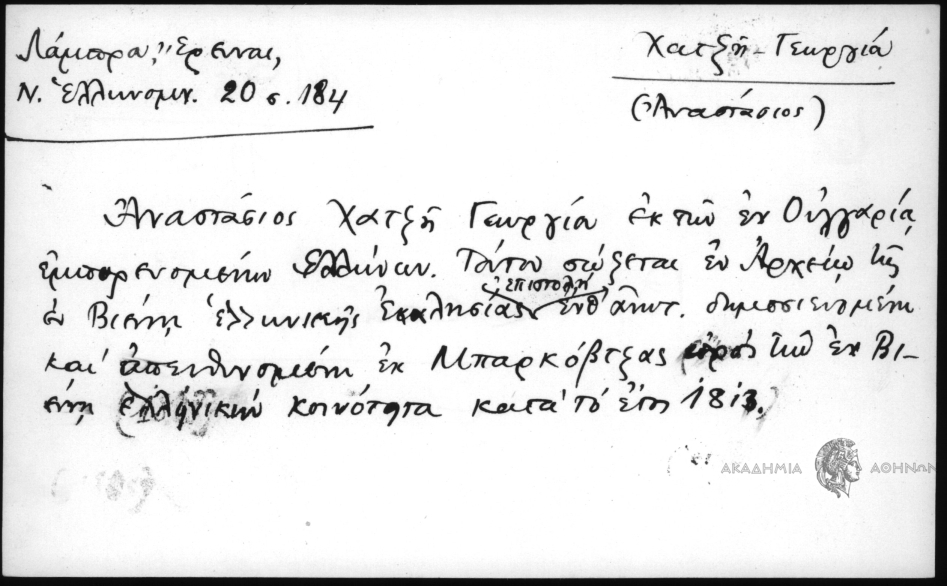 Λάμπρου, Ἔρευναι,
Ν. Ἑλληνομν. 20 σ. 184
Χατζῆ - Γεωργίου
(Ἀναστάσιος)
Ἀναστάσιος Χατζῆ Γεωργίου ἐκ τῶν ἐν Οὑγγαρίᾳ
ἐμπορευομένων Ἑλλήνων. Τούτου σῴζεται ἐν Ἀρχείῳ τῆς
ἐπιστολὴ
ἐν Βιέννῃ ἑλληνικῆς Ἐκκλησίας ἐνθ' ἀνωτ. δημοσιευομένη
καὶ ἀπευθυνομένη ἐκ Μπαρκόβτζας πρὸς τὴν ἐν Βι-
έννῃ ἑλληνικὴν κοινότητα κατὰ τὸ ἔτος 1813.
ΑΚΑΔΗΜΙΑ ΑΘΗΝΩΝ